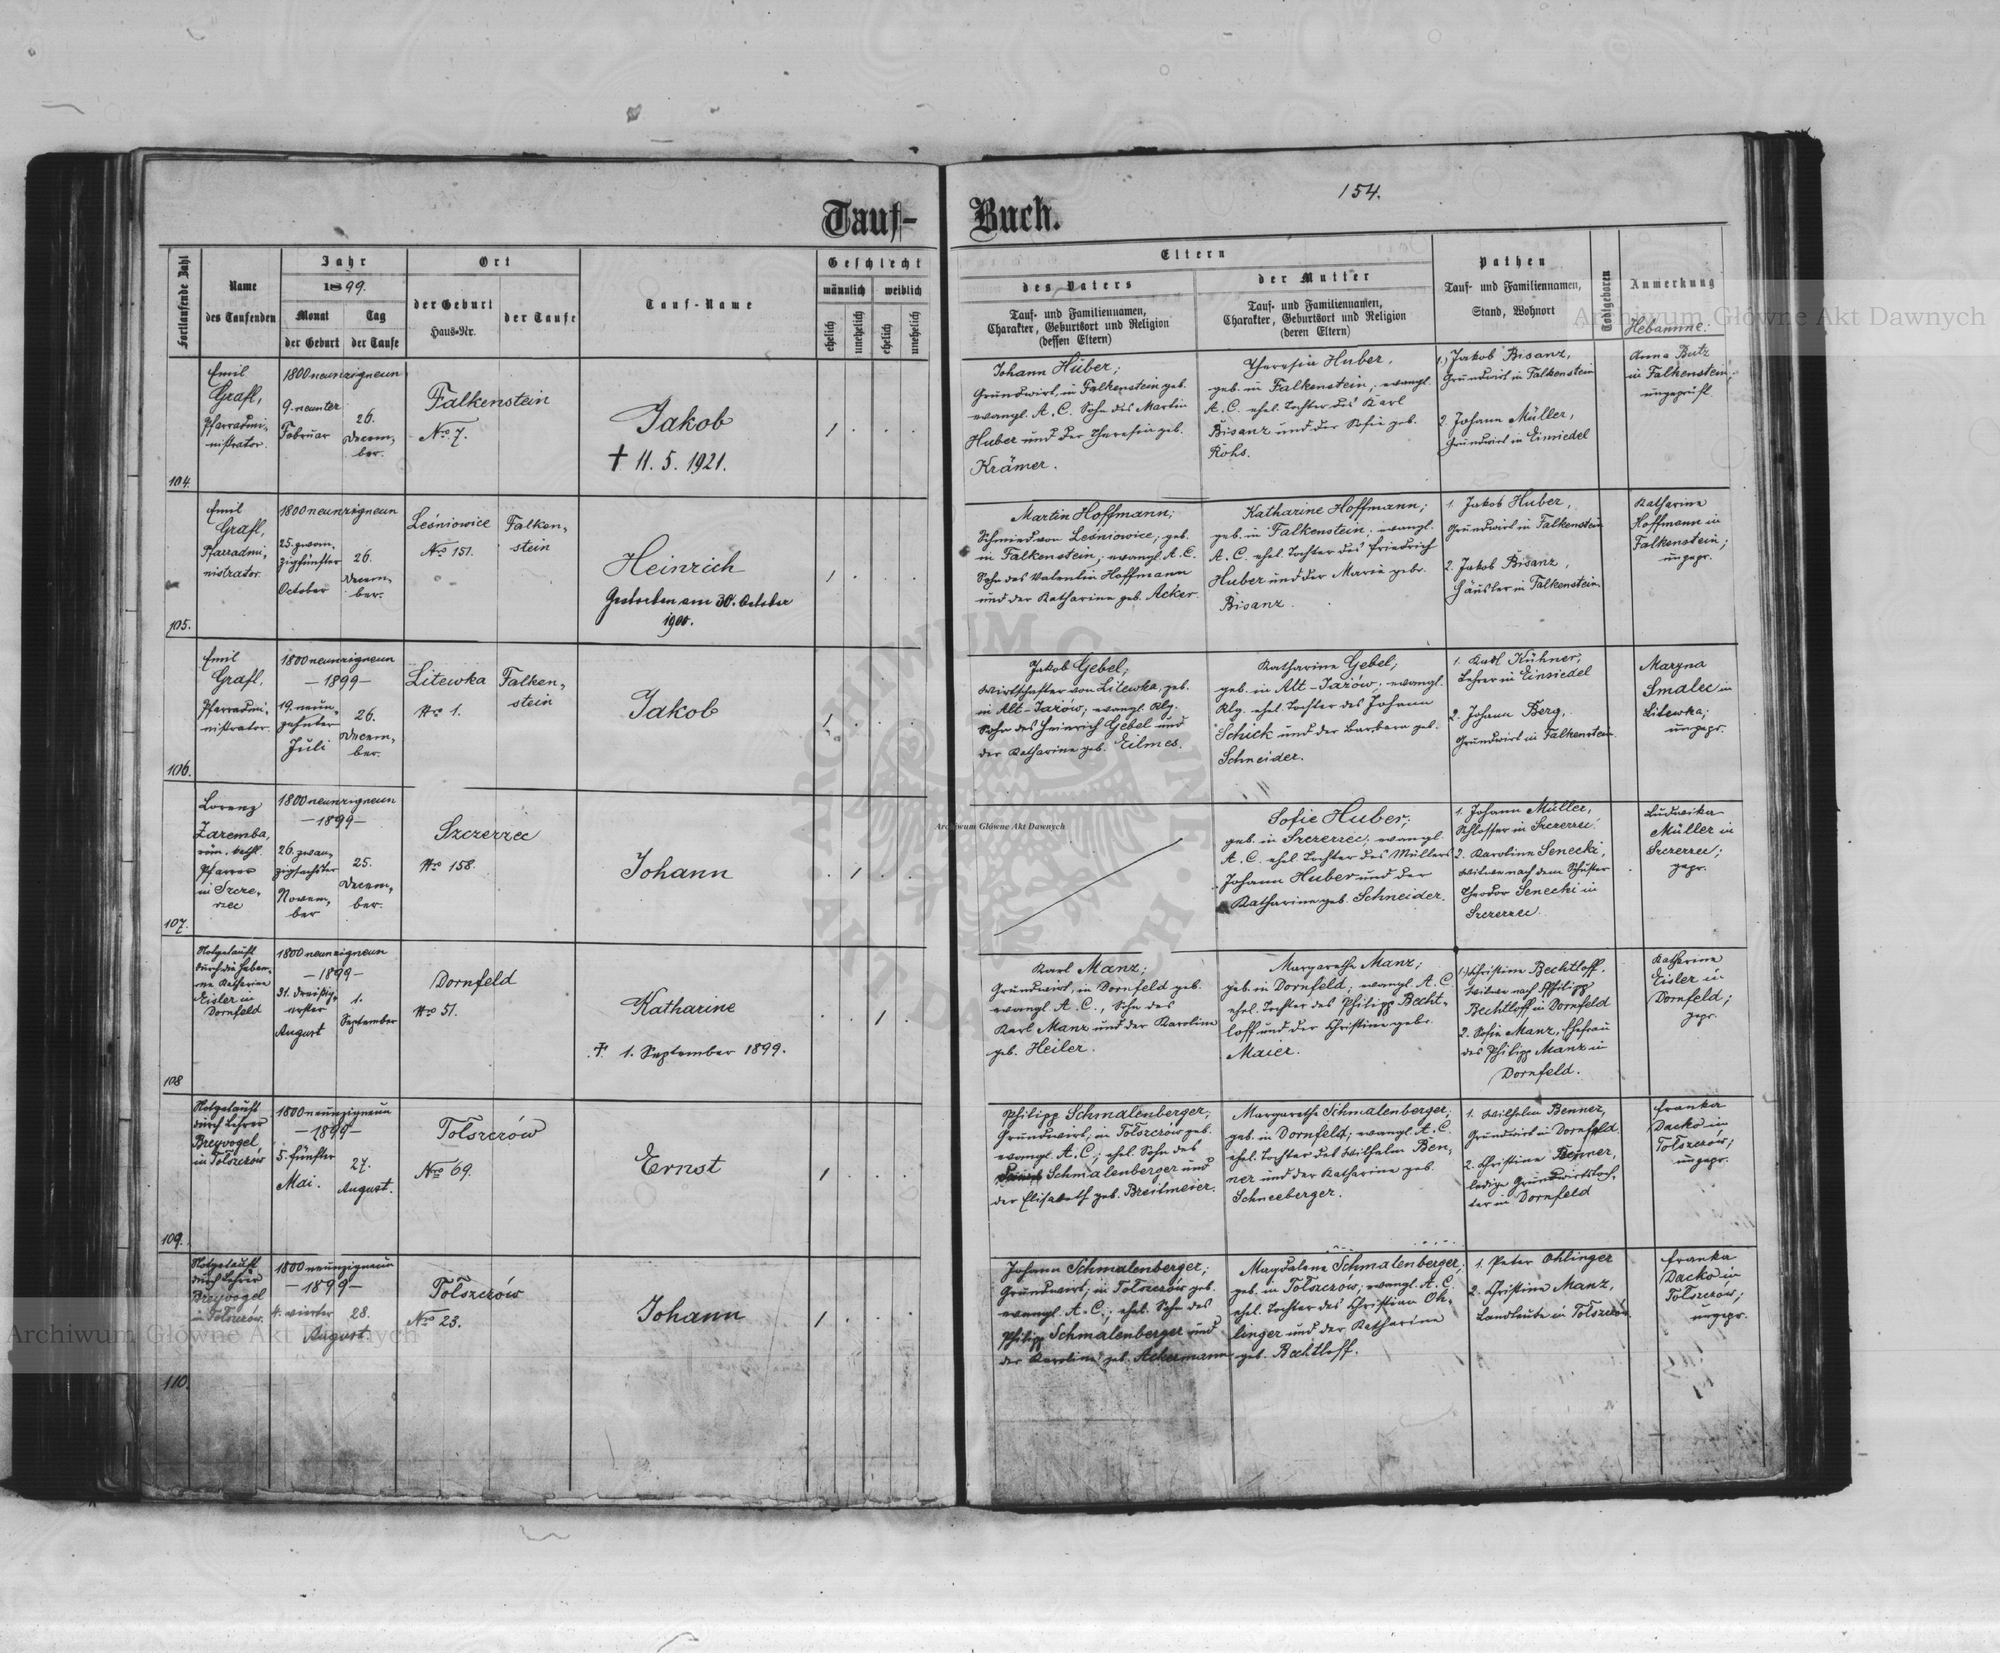 154.
Tauf-
Buch.
Fortlaufende Zahl
Name
des Taufenden
Jahr
1899.
Monat
der Geburt
Tag
der Taufe
Ort
der Geburt
Haus-Nr.
der Taufe
Tauf-Name
Geschlecht
männlich
weiblich
ehelich
unehelich
ehelich
unehelich
Eltern
des Vaters
Tauf- und Familiennamen,
Charakter, Geburtsort und Religion
(dessen Eltern)
der Mutter
Tauf- und Familiennamen,
Charakter, Geburtsort und Religion
(deren Eltern)
Pathen
Tauf- und Familiennamen,
Stand, Wohnort
Todtgeboren
Anmerkung
Hebamme:
104.
Emil
Grafl,
Pfarradmi-
nistrator.
1800neunzigneun
9. neunter
Februar
26.
Decem-
ber.
Falkenstein
Nro 7.
Jakob
† 11. 5. 1921.
1
Johann Huber;
Grundwirt, in Falkenstein geb.
evangl. A. C. Sohn des Martin
Huber und der Theresia geb.
Krämer.
Theresia Huber,
geb. in Falkenstein; evangl.
A. C. ehel. Tochter des Karl
Bisanz und der Sofie geb.
Kohs.
1.) Jakob Bisanz,
Grundwirt in Falkenstein
2. Johann Müller,
Grundwirt in Einsiedel
Anna Butz
in Falkenstein;
ungeprüft
105.
Emil
Grafl,
Pfarradmi-
nistrator.
1800neunzigneun
25. zwan-
zigfünfter
October
26.
Decem-
ber.
Leśniowice
Nro 151.
Falken-
stein
Heinrich
Gestorben am 30. October
1900.
1
Martin Hoffmann;
Schmied von Leśniowice; geb.
in Falkenstein; evangl. A. C.
Sohn des Valentin Hoffmann
und der Katharina geb. Acker.
Katharine Hoffmann;
geb. in Falkenstein; evangl.
A. C. ehel. Tochter des Friedrich
Huber und der Marie gebr.
Bisanz.
1. Jakob Huber,
Grundwirt in Falkenstein
2. Jakob Bisanz,
Häusler in Falkenstein.
Katharine
Hoffmann in
Falkenstein;
ungepr.
106.
Emil
Grafl,
Pfarradmi-
nistrator.
1800neunzigneun
— 1899 —
19. neun-
zehnter
Juli
26.
Decem-
ber.
Litewka
Nro 1.
Falken-
stein
Jakob
1
Jakob Gebel;
Wirtschafter von Litewka, geb.
in Alt-Jażów; evangl. Rlg.
Sohn des Heinrich Gebel und
der Katharina geb. Eilmes.
Katharine Gebel;
geb. in Alt-Jażów; evangl.
Rlg. ehel. Tochter des Johann
Schick und der Barbara geb.
Schneider.
1. Karl Kühner,
Lehrer in Einsiedel
2. Johann Berg,
Grundwirt in Falkenstein.
Maryna
Smalec in
Litewka;
ungepr.
107.
Lorenz
Zaremba,
röm. kathl.
Pfarrer
in Szcze-
rzec
1800neunzigneun
— 1899 —
26. zwan-
zigsechster
Novem-
ber
25.
Decem-
ber.
Szczerzec
Nro 158.
Johann
1
Sofie Huber;
geb. in Szczerzec; evangl.
A. C. ehel. Tochter des Müllers
Johann Huber und der
Katharina geb. Schneider.
1. Johann Müller,
Schlosser in Szczerzec.
2. Karoline Senecki,
Witwe nach dem Schuster
Theodor Senecki in
Szczerzec.
Ludwika
Müller in
Szczerzec;
gepr.
108
Notgetauft
durch die Hebam-
me Katharine
Eisler in
Dornfeld
1800neunzigneun
— 1899 —
31. dreißig-
erster
August
1.
September
Dornfeld
Nro 51.
Katharine
†. 1. September 1899.
1
Karl Manz;
Grundwirt, in Dornfeld geb.
evangl. A. C., Sohn des
Karl Manz und der Karoline
geb. Heiler.
Margarethe Manz;
geb. in Dornfeld; evangl. A. C.
ehel. Tochter des Philipp Becht-
loff und der Christine gebr.
Maier.
1.) Christine Bechtloff,
Witwe nach Philipp
Bechtloff in Dornfeld
2. Sofie Manz, Ehefrau
des Philipp Manz in
Dornfeld.
Katharine
Eisler in
Dornfeld;
gepr.
109.
Notgetauft
durch Lehrer
Breyvogel
in Tołszczów
1800neunzigneun
— 1899 —
5. fünfter
Mai.
27.
August.
Tołszczów
Nro 69.
Ernst
1
Philipp Schmalenberger;
Grundwirt; in Tołszczów geb.
evangl. A. C.; ehel. Sohn des
Schmalenberger und
der Elisabeth geb. Breitmeier.
Margarethe Schmalenberger;
geb. in Dornfeld; evangl. A. C.
ehel. Tochter des Wilhelm Ben-
ner und der Katharine geb.
Schneeberger.
1. Wilhelm Benner,
Grundwirt in Dornfeld
2. Christine Benner,
ledige Grundwirtstoch-
ter in Dornfeld
Franka
Dacko in
Tołszczów;
ungepr.
110.
Notgetauft
durch Lehrer
Breyvogel
in Tołszczów.
1800neunzigneun
— 1899 —
4. vierter
August.
28.
Tołszczów
Nro 23.
Johann
1
Johann Schmalenberger;
Grundwirt; in Tołszczów geb.
evangl. A. C.; ehel. Sohn des
Philipp Schmalenberger und
der Karoline geb. Ackermann
Magdalena Schmalenberger;
geb. in Tołszczów, evangl. A. C.
ehel. Tochter des Christian Oh-
linger und der Katharine
geb. Bechtloff.
1. Peter Ohlinger
2. Christine Manz,
Landleute in Tołszczów
Franka
Dacko in
Tołszczów;
ungepr.
Archiwum Główne Akt Dawnych
Archiwum Główne Akt Dawnych
Archiwum Główne Akt Dawnych